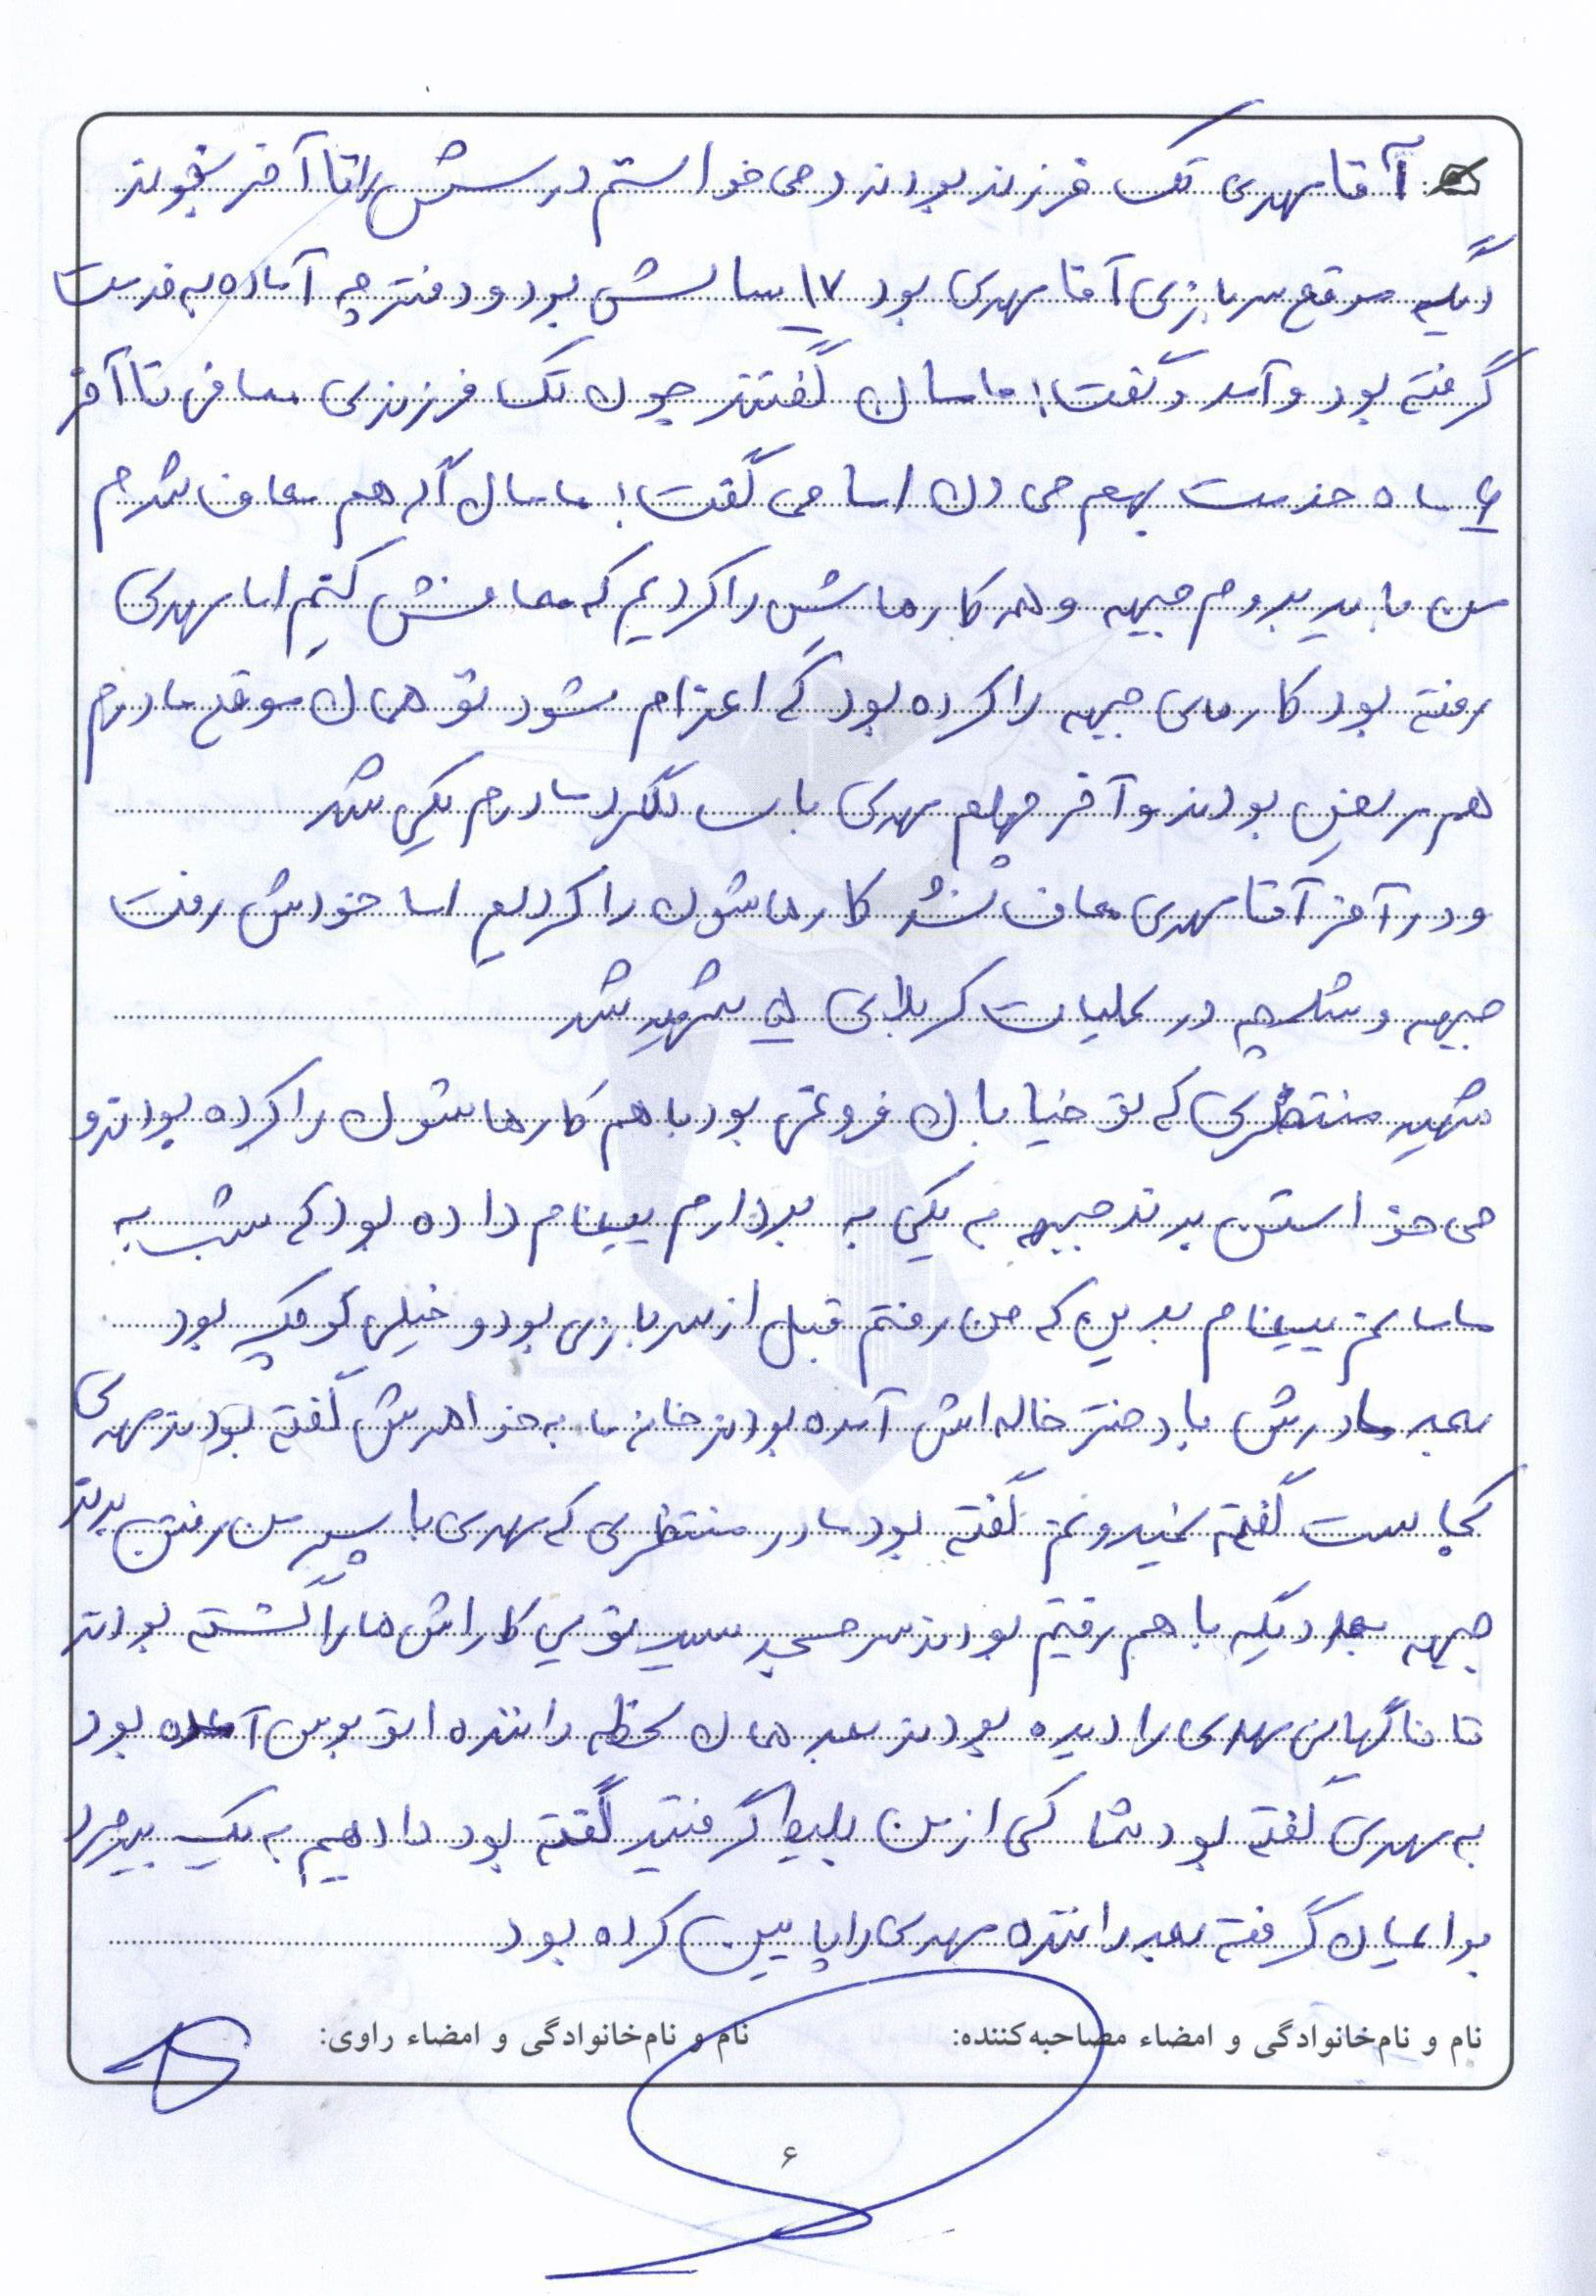 آقا مهدی تک فرزند بودند و می خواستم درسش را تا آخر بخوند
دیگه موقع سربازی آقا مهدی بود ۱۷ سالش بود و دفترچه آماده به خدمت
گرفته بود و آمد و گفت: مامان گفتند چون تک فرزندی معافی تا آخر
۶ ماه خدمت بهم می دن اما می گفت: مامان اگر هم معاف شدم
من باید بروم جبهه و همه کارهایش را کردیم که معافش کنیم اما مهدی
رفته بود کارهای جبهه را کرده بود که اعزام شود تو همان موقع مادرم
هم مریض بودند و آخر چهلم مهدی با سالگرد مادرم یکی شد
و در آخر آقا مهدی معاف نشد کارهاشون را کردیم اما خودش رفت
جبهه و شلمچه در عملیات کربلای ۵ شهید شد
شهید منتظری که تو خیابان فروغی بود با هم کارهاشون را کرده بودند و
می خواستن برند جبهه به یکی به برادرم پیغام داده بود که شب به
مامانم پیغام بدین که من رفتم قبل از سربازی بود و خیلی کوچک بود
بعد مادرش با دختر خاله اش آمده بودند خانه ما به خواهرش گفته بودند مهدی
کجاست گفته نمیدونم گفته بود مادر منتظری که مهدی با پسر من رفتن برند
جبهه بعد دیگه با هم رفتیم بودند سر مسجد سید توی کاراش ها را گشته بودند
تا ناگهان مهدی را دیده بودند بعد همان لحظه راننده اتوبوس آمده بود
به مهدی گفته بود شما کی از من بلیط گرفتید گفته بود دادهیم به یک پیرمرد
برامان گرفته بعد راننده مهدی را پایین کرده بود
نام و نام‌خانوادگی و امضاء مصاحبه‌کننده: نام و نام‌خانوادگی و امضاء راوی:
۶